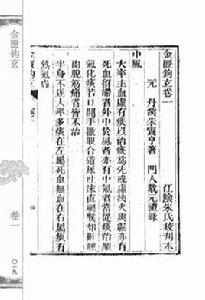 金匱鉤玄卷一
元 丹溪朱震亨著 門人戴元禮錄
中風
大率主血虛有痰以治痰為先或虛挾火與濕亦有
死血留滯者外中於風者亦有中氣者當從痰治順
氣化痰若口開手撒眼合遺尿吐沫直視喉如鼾睡
肉脫筋痛者皆不治
半身不遂大率多痰在左屬死血無血在右屬痰有
熱氣虛
金匱鉤玄
卷一
〇一九